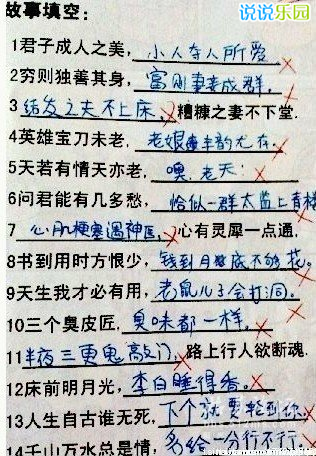 说说乐园
故事填空：
1君子成人之美，小人夺人所爱
2穷则独善其身，富则妻妾成群，
3 结发之夫不上床，糟糠之妻不下堂.
4英雄宝刀未老，老娘丰韵尤存.
5天若有情天亦老，噢，老天
6问君能有几多愁，恰似一群太监上青楼
7 心肌梗塞遇神医，心有灵犀一点通，
8书到用时方恨少，钱到月底不够花。
9天生我才必有用，老鼠儿子会打洞。
10三个臭皮匠，臭味都一样，
11半夜三更鬼敲门，路上行人欲断魂.
12床前明月光，李白睡得香。
13人生自古谁无死，下个就要轮到你.
14千山万水总是情，多给一分行不行.